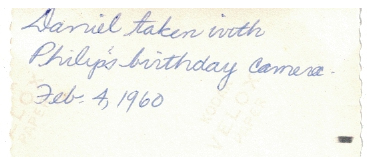 Daniel taken with
Philip's birthday camera.
Feb. 4, 1960
VELOX
PAPER
KODAK
VELOX
PAPER